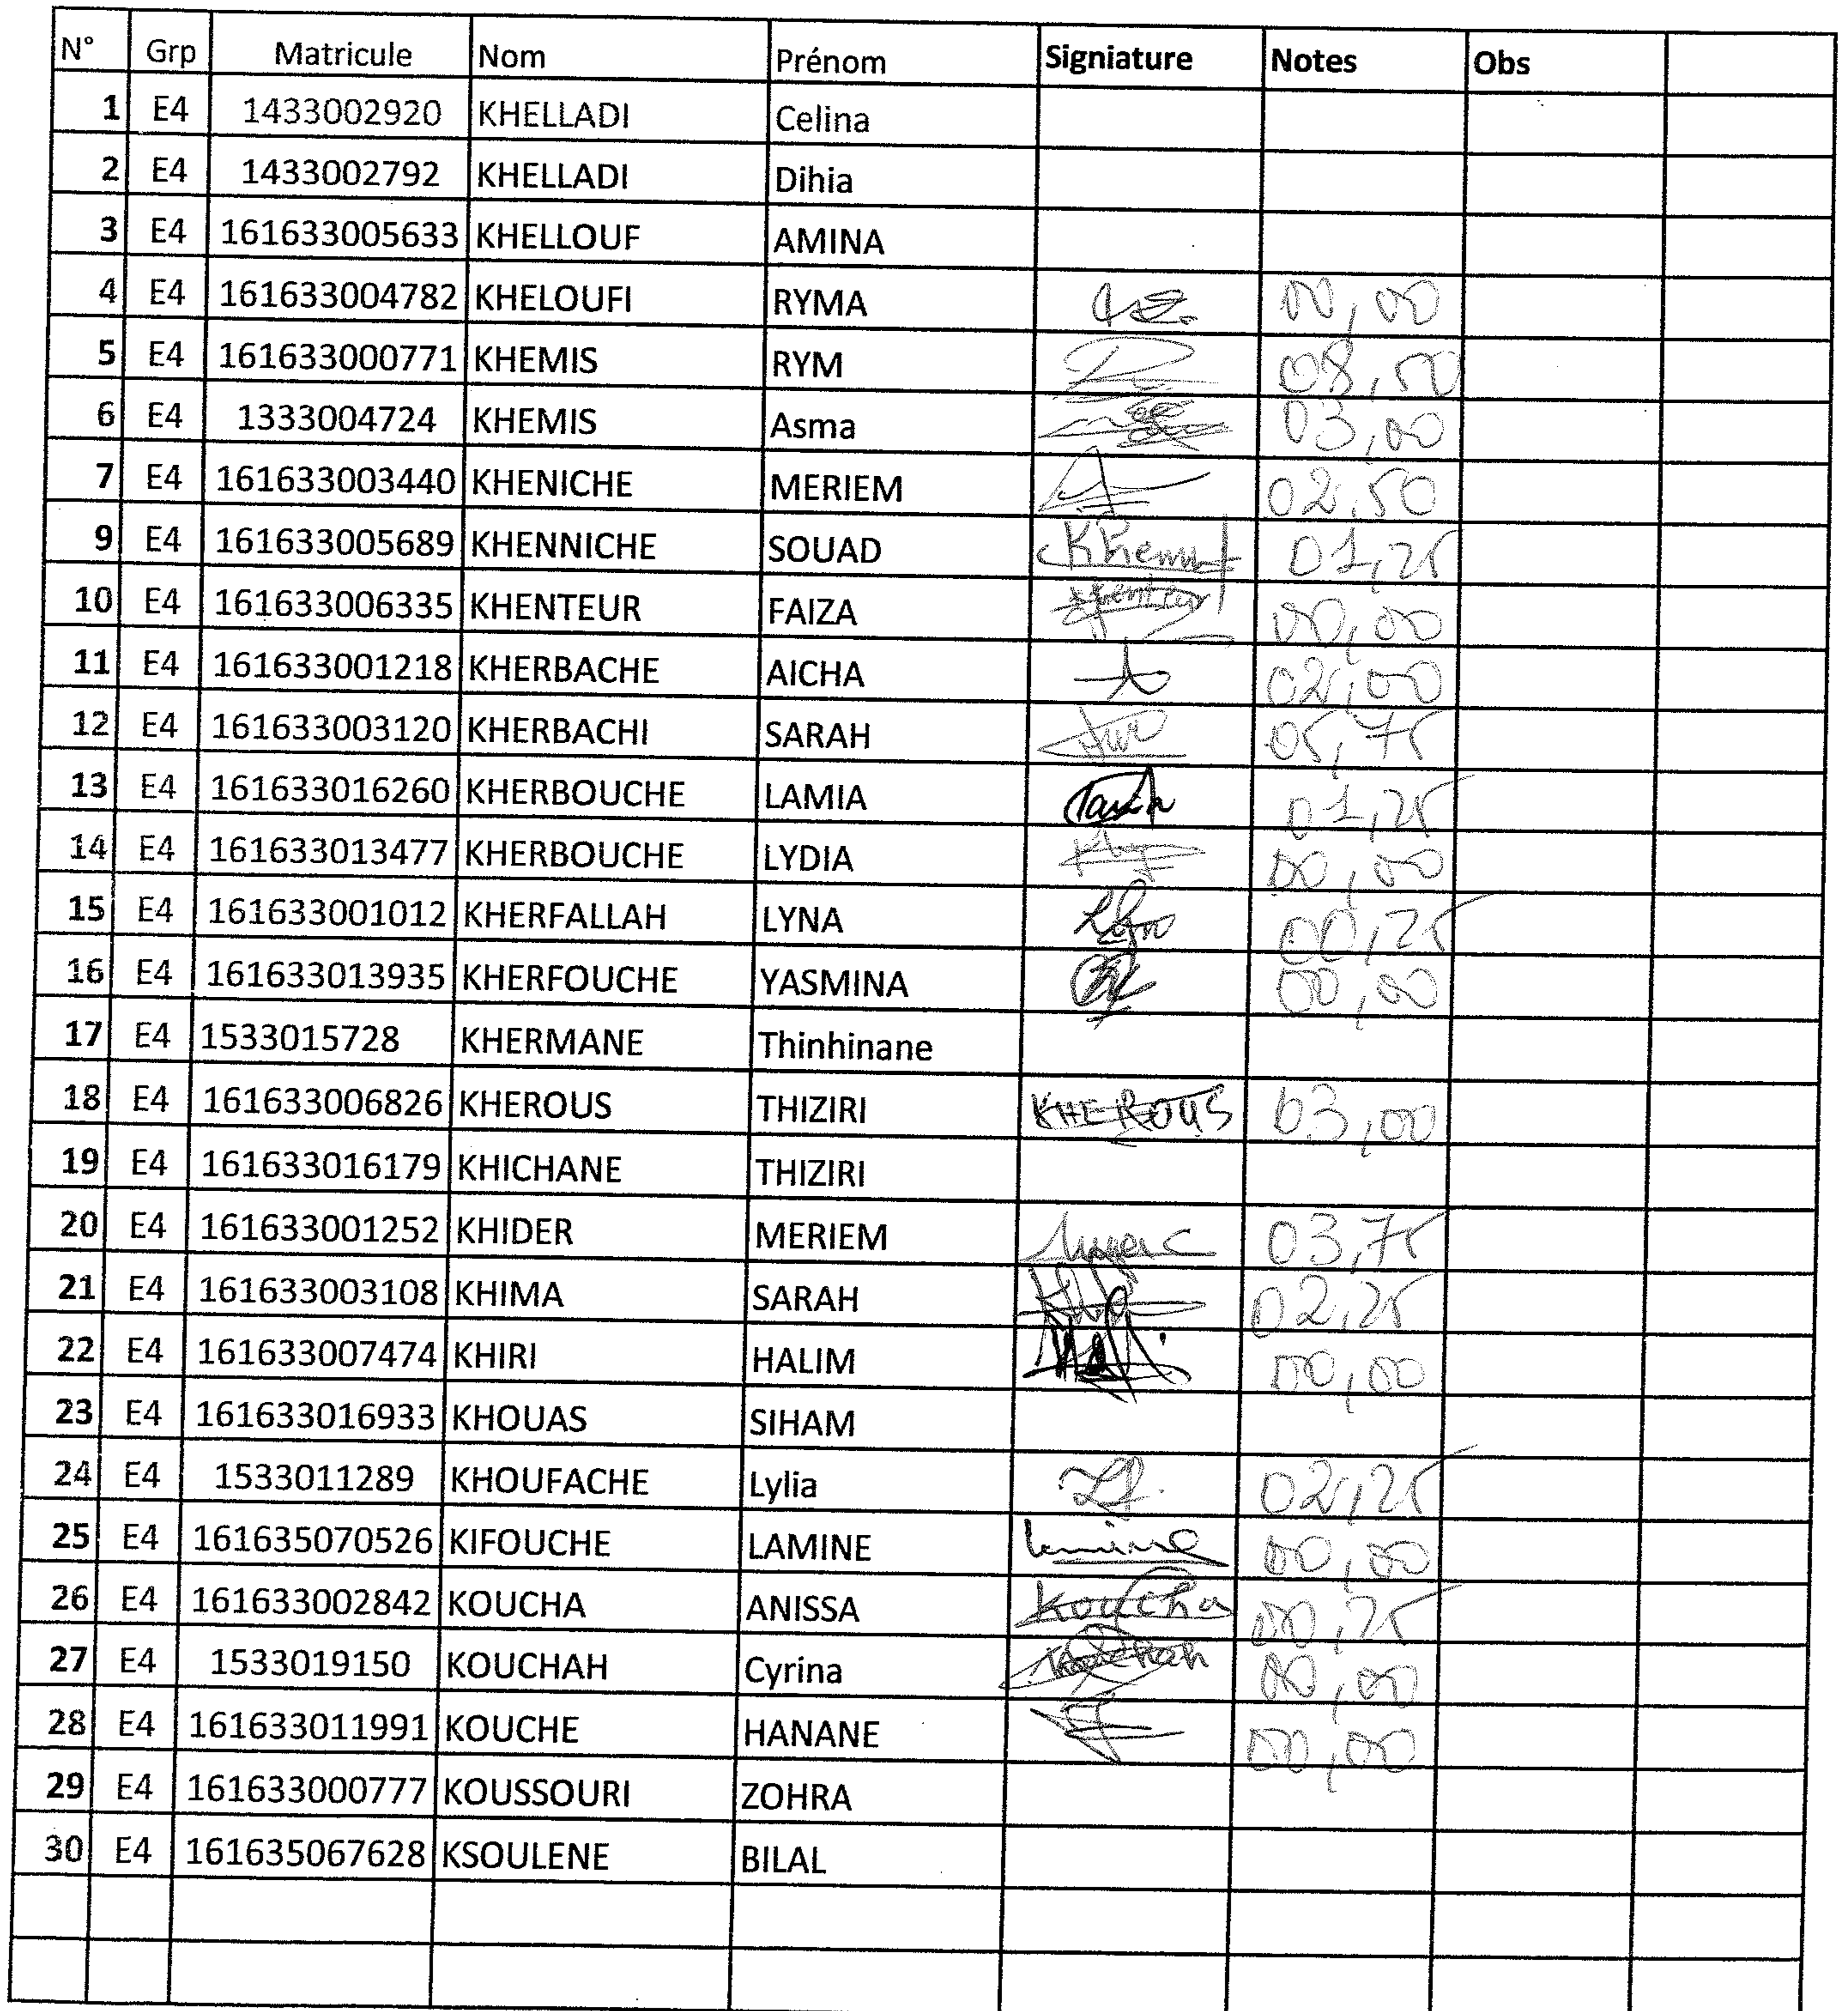 N° Grp Matricule Nom Prénom Signiature Notes Obs
1 E4 1433002920 KHELLADI Celina
2 E4 1433002792 KHELLADI Dihia
3 E4 161633005633 KHELLOUF AMINA
4 E4 161633004782 KHELOUFI RYMA 00,00
5 E4 161633000771 KHEMIS RYM 08,50
6 E4 1333004724 KHEMIS Asma 03,00
7 E4 161633003440 KHENICHE MERIEM 02,50
9 E4 161633005689 KHENNICHE SOUAD 01,25
10 E4 161633006335 KHENTEUR FAIZA 00,00
11 E4 161633001218 KHERBACHE AICHA 02,00
12 E4 161633003120 KHERBACHI SARAH 05,75
13 E4 161633016260 KHERBOUCHE LAMIA 01,25
14 E4 161633013477 KHERBOUCHE LYDIA 00,00
15 E4 161633001012 KHERFALLAH LYNA 00,25
16 E4 161633013935 KHERFOUCHE YASMINA 00,00
17 E4 1533015728 KHERMANE Thinhinane
18 E4 161633006826 KHEROUS THIZIRI KHEROUS 03,00
19 E4 161633016179 KHICHANE THIZIRI
20 E4 161633001252 KHIDER MERIEM 03,75
21 E4 161633003108 KHIMA SARAH 02,25
22 E4 161633007474 KHIRI HALIM 00,00
23 E4 161633016933 KHOUAS SIHAM
24 E4 1533011289 KHOUFACHE Lylia 02,25
25 E4 161635070526 KIFOUCHE LAMINE 00,00
26 E4 161633002842 KOUCHA ANISSA Koucha 00,25
27 E4 1533019150 KOUCHAH Cyrina 00,00
28 E4 161633011991 KOUCHE HANANE 00,00
29 E4 161633000777 KOUSSOURI ZOHRA
30 E4 161635067628 KSOULENE BILAL